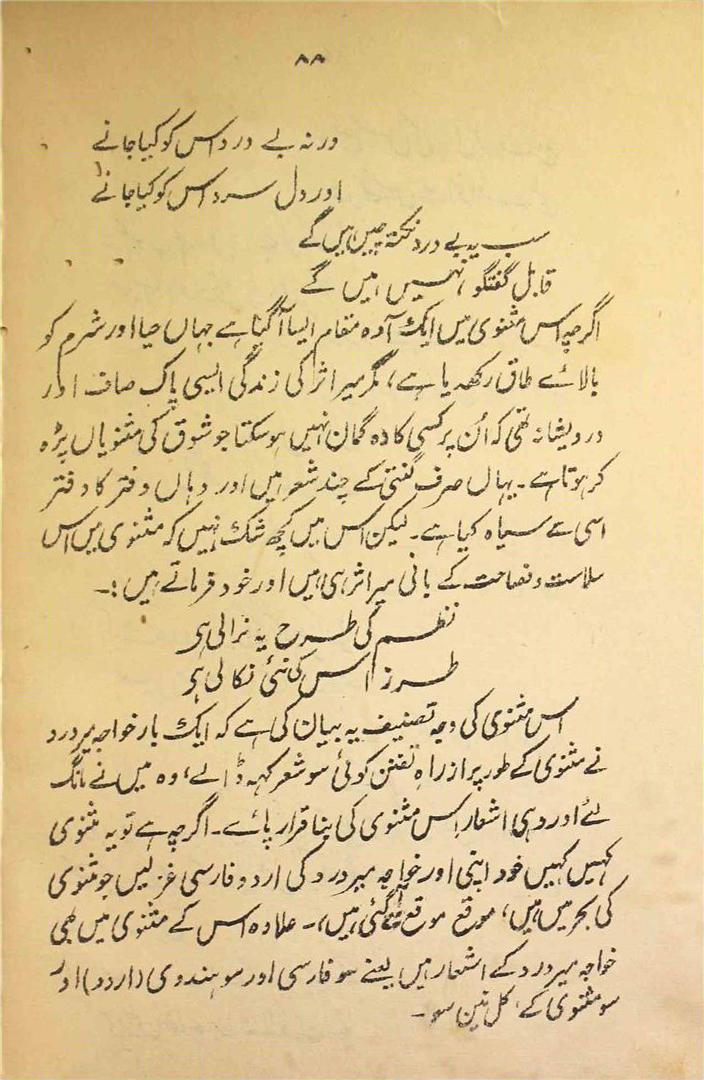 ۸۸
ورنہ بے درد اس کو کیا جانے
اور دل سرد اس کو کیا جانے
سب یہ بے درد نکتہ چیں ہیں گے
قابل گفتگو نہیں ہیں گے
اگرچہ اس مثنوی میں ایک آدہ مقام ایسا آگیا ہے جہاں حیا اور شرم کو
بالائے طاق رکھدیا ہے، مگر میر اثر کی زندگی ایسی پاک صاف اور
درویشانہ تھی کہ اُن پر کسی کا وہ گمان نہیں ہوسکتا جو شوق کی مثنویاں پڑہ
کر ہوتا ہے۔ یہاں صرف گنتی کے چند شعر ہیں اور وہاں دفتر کا دفتر
اسی سے سیاہ کیا ہے۔ لیکن اس میں کچھ شک نہیں کہ مثنوی میں اس
سلاست و فصاحت کے بانی میر اثر ہی ہیں اور خود فرماتے ہیں :۔
نظم کی طرح یہ نرالی ہی
طرز اس کی نئی نکالی ہی
اس مثنوی کی وجہ تصنیف یہ بیان کی ہے کہ ایک بار خواجہ میر درد
نے مثنوی کے طور پر از راہِ تفنن کوئی سو شعر کہہ ڈالے، وہ میں نے مانگ
لئے اور وہی اشعار اس مثنوی کی بنا قرار پائے۔ اگرچہ ہے تو یہ مثنوی
کہیں کہیں خود اپنی اور خواجہ میر درد کی اردو فارسی غزلیں جو مثنوی
کی بحر میں ہیں، موقع موقع آگئی ہیں،۔ علاوہ اس کے مثنوی میں بھی
خواجہ میر درد کے اشعار ہیں یعنے سو فارسی اور سو ہندوی (اردو) اور
سو مثنوی کے، کل تین سو۔